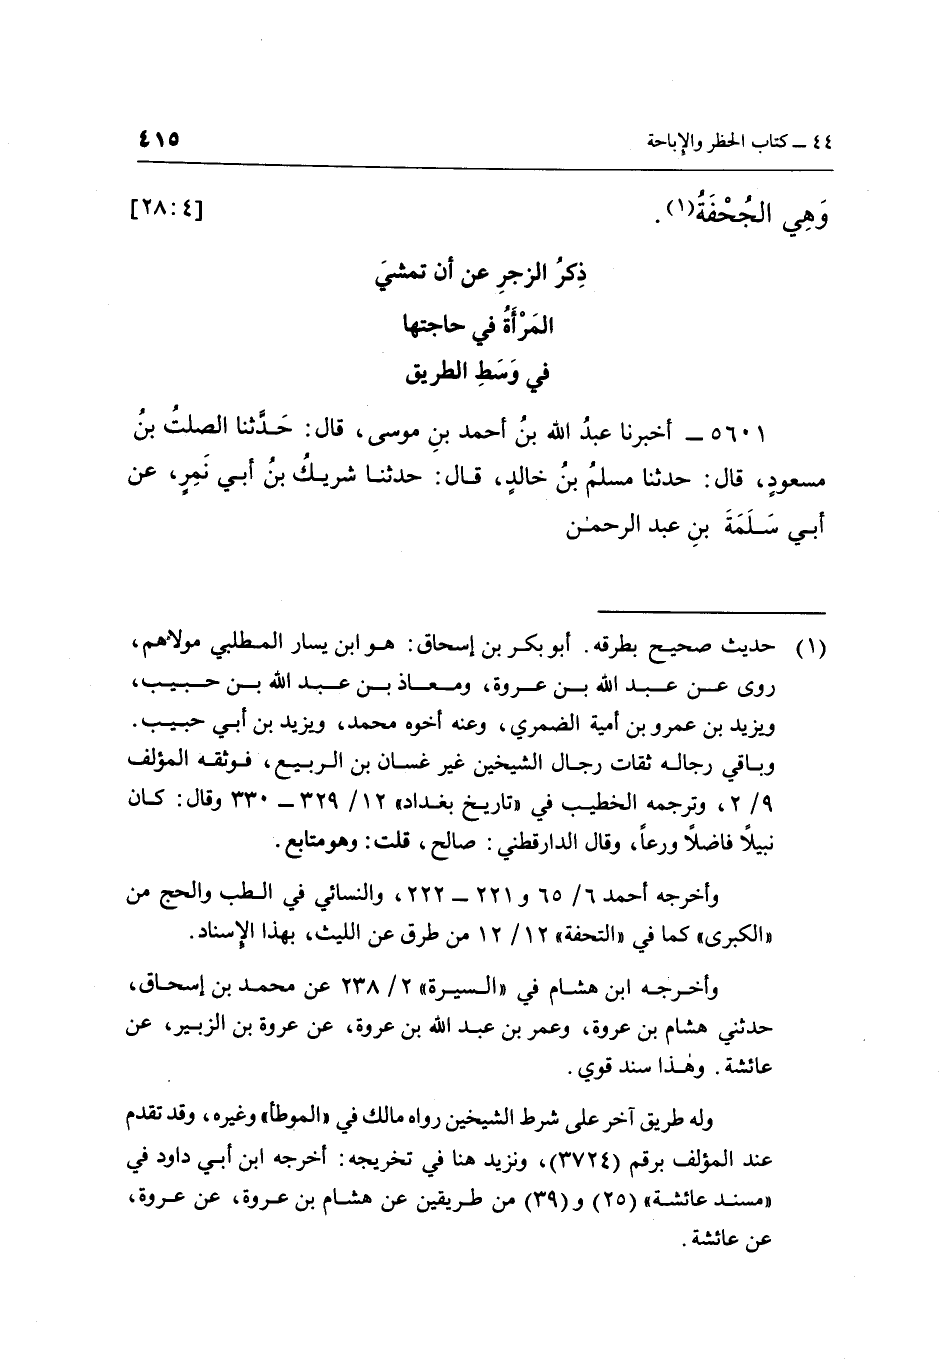 ٤٤ ـ كتاب الحظر والإباحة ٤١٥
وَهِي الجُحْفَةُ(١). [٢٨:٤]
ذِكرُ الزجرِ عن أن تمشيَ
المَرْأَةُ في حاجتها
في وَسَطِ الطريق
٥٦٠١ ـ أخبرنا عبدُ الله بنُ أحمد بنِ موسى، قال: حَدَّثنا الصلتُ بنُ
مسعودٍ، قال: حدثنا مسلمُ بنُ خالدٍ، قال: حدثنا شريكُ بنُ أبي نَمِرٍ، عن
أبي سَلَمَةَ بنِ عبد الرحمٰن
(١) حديث صحيح بطرقه. أبو بكر بن إسحاق: هو ابن يسار المطلبي مولاهم،
روى عن عبد الله بن عروة، ومعاذ بن عبد الله بن حبيب،
ويزيد بن عمرو بن أمية الضمري، وعنه أخوه محمد، ويزيد بن أبي حبيب.
وباقي رجاله ثقات رجال الشيخين غير غسان بن الربيع، فوثقه المؤلف
٩/ ٢، وترجمه الخطيب في «تاريخ بغداد» ١٢/ ٣٢٩ ـ ٣٣٠ وقال: كان
نبيلاً فاضلاً ورعاً، وقال الدارقطني: صالح، قلت: وهو متابع.
وأخرجه أحمد ٦/ ٦٥ و ٢٢١ ـ ٢٢٢، والنسائي في الطب والحج من
«الكبرى» كما في «التحفة» ١٢/ ١٢ من طرق عن الليث، بهذا الإسناد.
وأخرجه ابن هشام في «السيرة» ٢/ ٢٣٨ عن محمد بن إسحاق،
حدثني هشام بن عروة، وعمر بن عبد الله بن عروة، عن عروة بن الزبير، عن
عائشة. وهٰذا سند قوي.
وله طريق آخر على شرط الشيخين رواه مالك في «الموطأ» وغيره، وقد تقدم
عند المؤلف برقم (٣٧٢٤)، ونزيد هنا في تخريجه: أخرجه ابن أبي داود في
«مسند عائشة» (٢٥) و (٣٩) من طريقين عن هشام بن عروة، عن عروة،
عن عائشة.